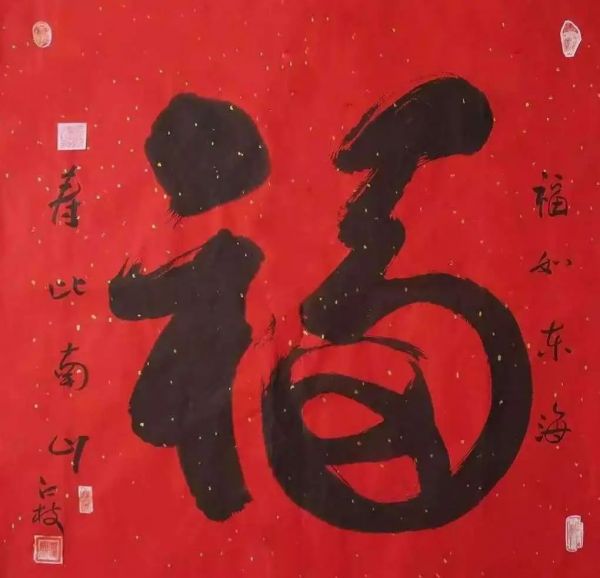 福如东海
福
寿比南山
江枝